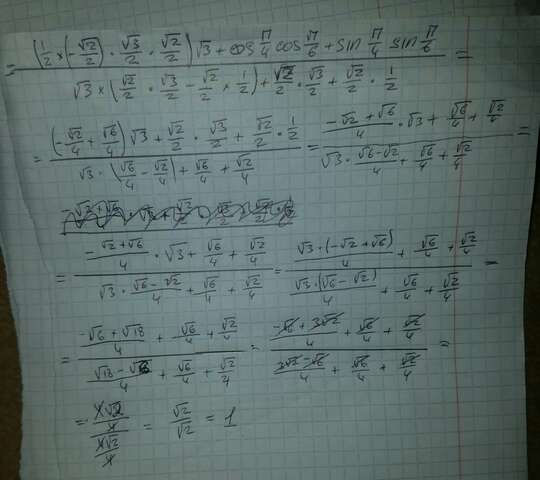 = ((1/2 × (-√2/2) · √3/2 · √2/2) √3 + cos π/4 cos π/6 + sin π/4 sin π/6) / (√3 × (√2/2 · √3/2 - √2/2 × 1/2) + √2/2 · √3/2 + √2/2 · 1/2) =
= ((-√2/4 + √6/4) √3 + √2/2 · √3/2 + √2/2 · 1/2) / (√3 · (√6/4 - √2/4) + √6/4 + √2/4) = ((-√2 + √6)/4 · √3 + √6/4 + √2/4) / (√3 · (√6 - √2)/4 + √6/4 + √2/4) =
= ((-√2 + √6)/4 · √3 + √6/4 + √2/4) / (√3 · (√6 - √2)/4 + √6/4 + √2/4) = (√3 · (-√2 + √6)/4 + √6/4 + √2/4) / (√3 · (√6 - √2)/4 + √6/4 + √2/4) =
= ((-√6 + √18)/4 + √6/4 + √2/4) / ((√18 - √6)/4 + √6/4 + √2/4) = ((-√6 + 3√2)/4 + √6/4 + √2/4) / ((3√2 - √6)/4 + √6/4 + √2/4) =
= (4√2/4) / (4√2/4) = √2/√2 = 1